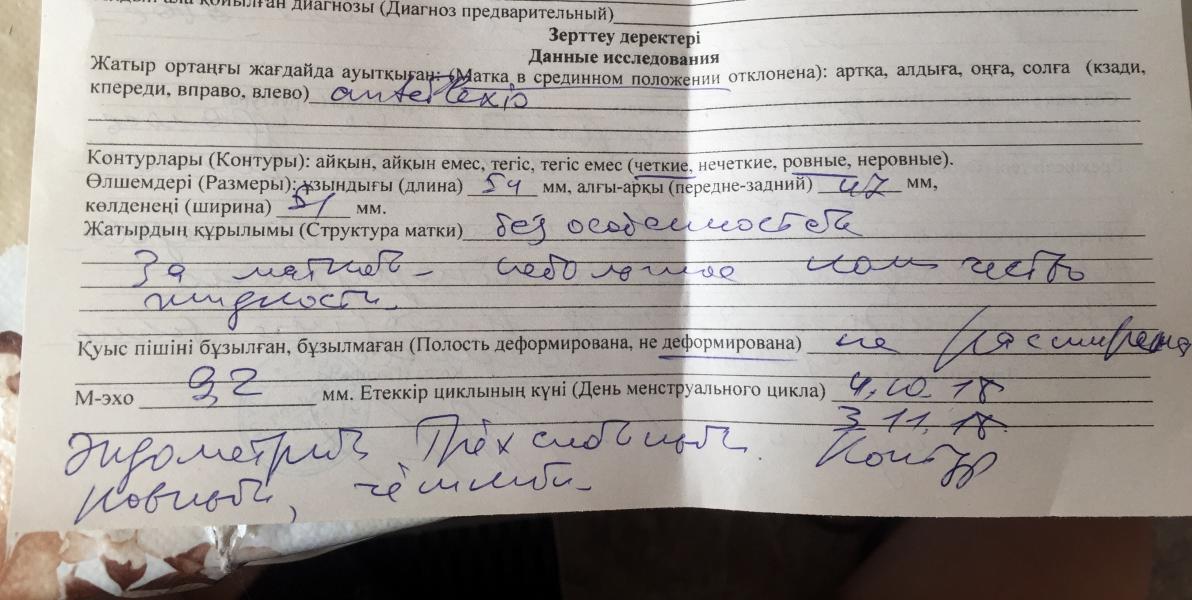 қойылған диагнозы (Диагноз предварительный)
Зерттеу деректері
Данные исследования
Жатыр ортаңғы жағдайда ауытқыған: (Матка в срединном положении отклонена): артқа, алдыға, оңға, солға (кзади,
кпереди, вправо, влево) anteflexio
Контурлары (Контуры): айқын, айқын емес, тегіс, тегіс емес (четкие, нечеткие, ровные, неровные).
Өлшемдері (Размеры): ұзындығы (длина) 54 мм, алғы-арқы (передне-задний) 47 мм,
көлденеңі (ширина) 51 мм.
Жатырдың құрылымы (Структура матки) без особенностей
За маткой - небольшое количество
жидкости.
Қуыс пішіні бұзылған, бұзылмаған (Полость деформирована, не деформирована) не расширена
М-эхо 9,2 мм. Етеккір циклының күні (День менструального цикла) 4.10.18
3.11.18.
Эндометрий трёхслойный. Контур
ровный, чёткий.